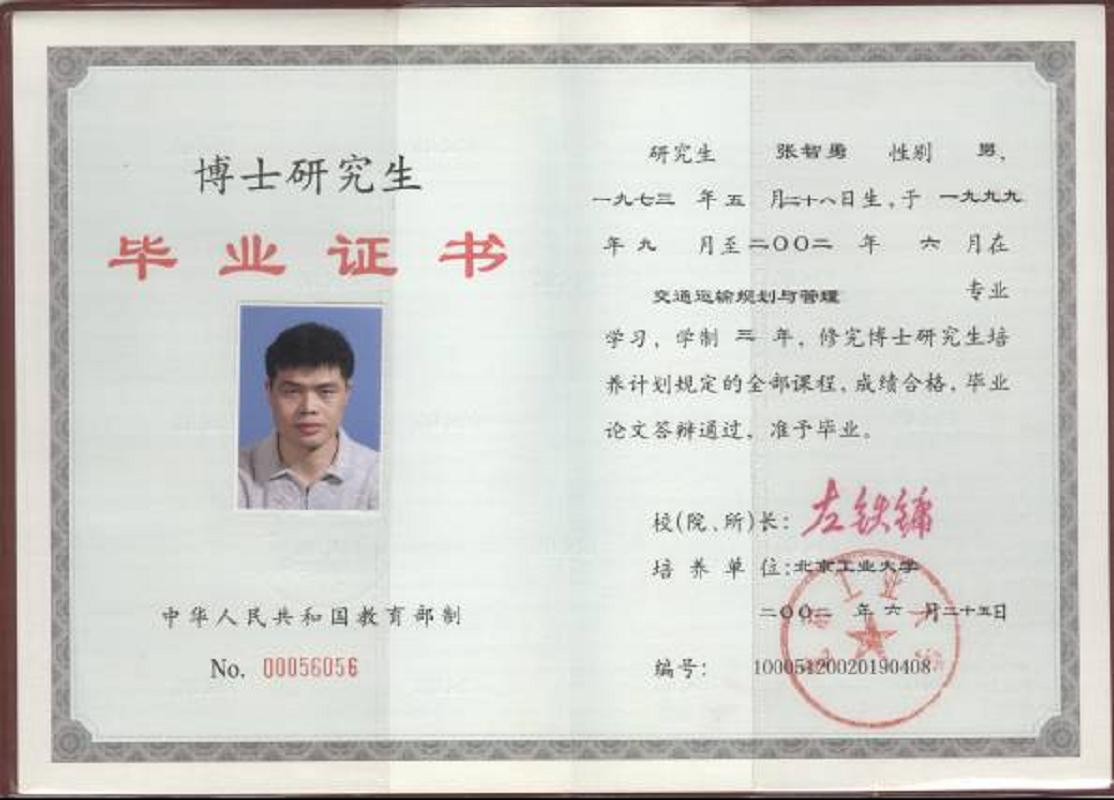 博士研究生
毕业证书
中华人民共和国教育部制
No. 00056056
研究生 张智勇 性别 男、
一九七三 年 五 月二十八日生，于 一九九九
年 九 月至二〇〇二 年 六 月在
交通运输规划与管理 专业
学习，学制 三 年，修完博士研究生培
养计划规定的全部课程，成绩合格，毕业
论文答辩通过，准予毕业。
校(院、所)长: 左铁镛
培养单位:北京工业大学
二〇〇二 年 六 月二十五日
编号: 10005120020190408